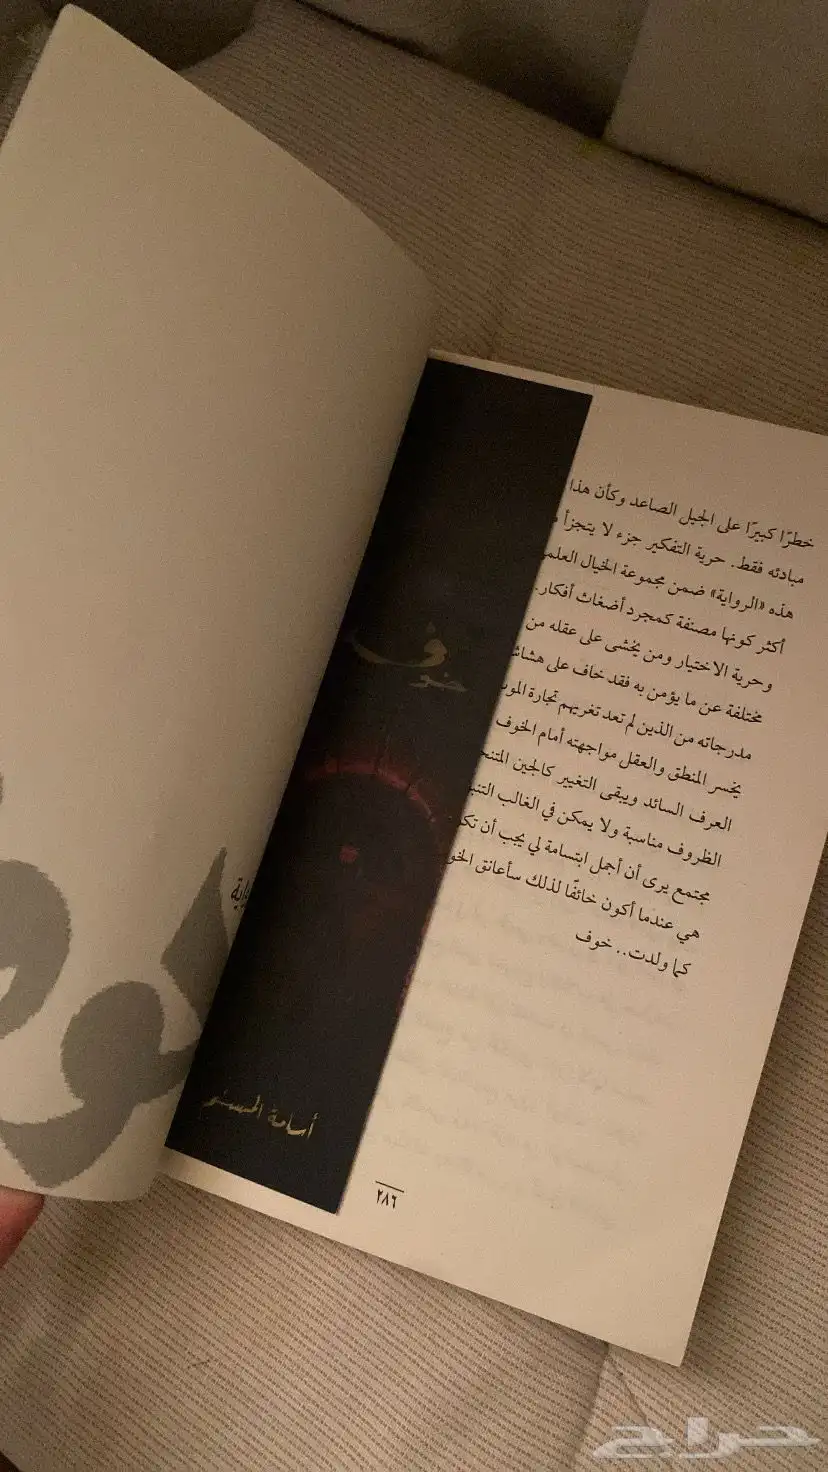 خطرًا كبيرًا على الجيل الصاعد وكأن هذا
مبادئه فقط. حرية التفكير جزء لا يتجزأ
هذه «الرواية» ضمن مجموعة الخيال
أكثر كونها مصنفة كمجرد أضغاث أفكار.
وحرية الاختيار ومن يخشى على عقله من
مختلفة عن ما يؤمن به فقد خاف على
مدرجاته من الذين لم تعد تغريهم تجارة
يخسر المنطق والعقل مواجهته أمام الخوف
العرف السائد ويبقى التغيير كالجبن
الظروف مناسبة ولا يمكن في الغالب
مجتمع يرى أن أجمل ابتسامة لي يجب أن
هي عندما أكون خائفًا لذلك سأعانق
كما ولدت.. خوف
٢٨٦
خوف
أسامة المسلم
حراج